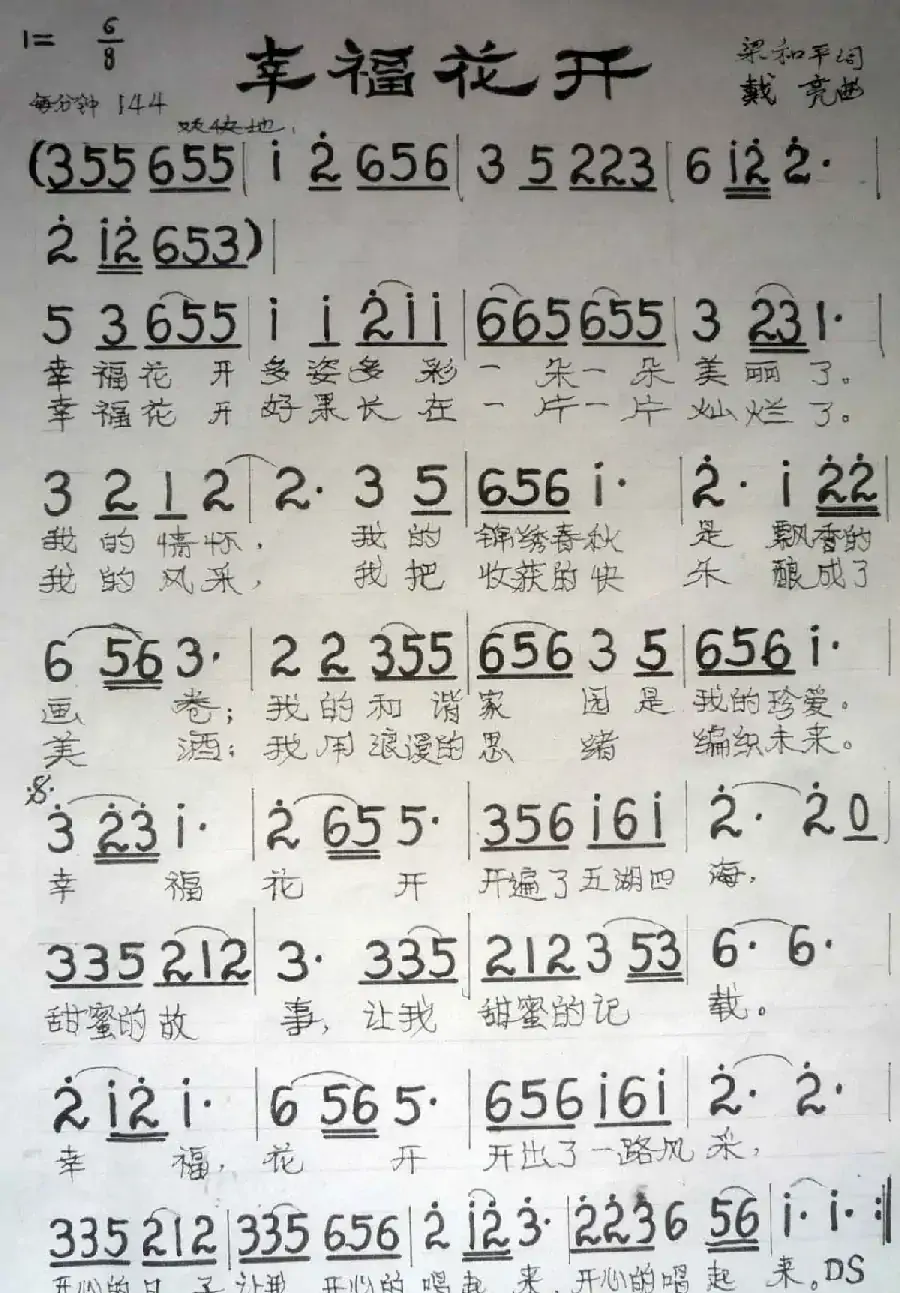 1= 6/8 幸福花开 梁和平词
每分钟 144 戴 亮曲
欢快地
(355 655 | i 2̇ 656 | 3 5 223 | 6 i2̇ 2̇· |
2̇ i2̇ 653) |
5 3 655 | i i 2̇ii | 665 655 | 3 23 1· |
幸福花开多姿多彩一朵一朵美丽了。
幸福花开好果长在一片一片灿烂了。
3 2 1 2 | 2· 3 5 | 656 i· | 2̇· i 2̇2̇
我的情怀, 我的锦绣春秋是飘香的
我的风采, 我把收获的快乐酿成了
6 56 3· | 2 2 355 | 656 3 5 | 656 i· |
画卷;我的和谐家园是我的珍爱。
美酒;我用浪漫的思绪编织未来。
𝄋
3̇ 2̇3̇ i· | 2̇ 65 5· | 356 i6i | 2̇· 2̇ 0 |
幸福花开开遍了五湖四海,
335 212 | 3· 335 | 212 3 53 | 6· 6· |
甜蜜的故事,让我甜蜜的记载。
2̇ i2̇ i· | 6 56 5· | 656 i6i | 2̇· 2̇· |
幸福,花开开出了一路风采,
335 212 | 335 656 | 2̇ i2̇ 3̇· | 2̇2̇3̇ 6 56 | i· i· :‖
开心的日子让我开心的唱起来,开心的唱起来。DS